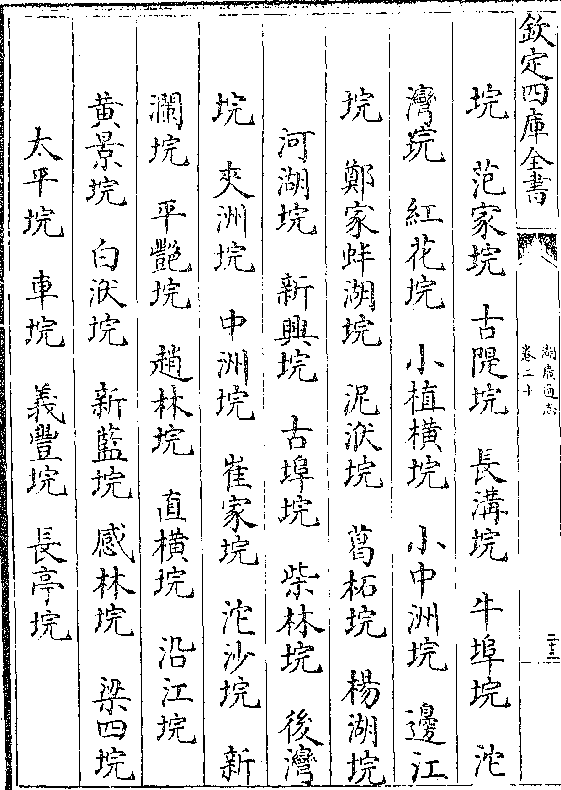 欽定四庫全書
湖廣通志
卷二十
二十三
垸 范家垸 古隄垸 長溝垸 牛埠垸 沱
灣垸 紅花垸 小植橫垸 小中洲垸 邊江
垸 鄭家蚌湖垸 泥洑垸 葛柘垸 楊湖垸
河湖垸 新興垸 古埠垸 柴林垸 後灣
垸 夾洲垸 中洲垸 崔家垸 沱沙垸 新
瀾垸 平艷垸 趙林垸 直橫垸 沿江垸
黃景垸 白洑垸 新藍垸 感林垸 梁四垸
太平垸 車垸 義豐垸 長亭垸